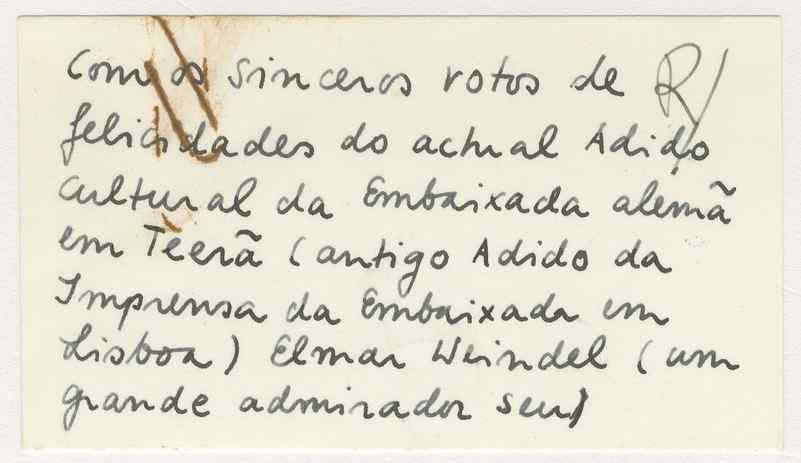 Com os sinceros votos de R/
felicidades do actual Adido
Cultural da Embaixada alemã
em Teerã (antigo Adido da
Imprensa da Embaixada em
Lisboa) Elmar Weindel (um
grande admirador seu)